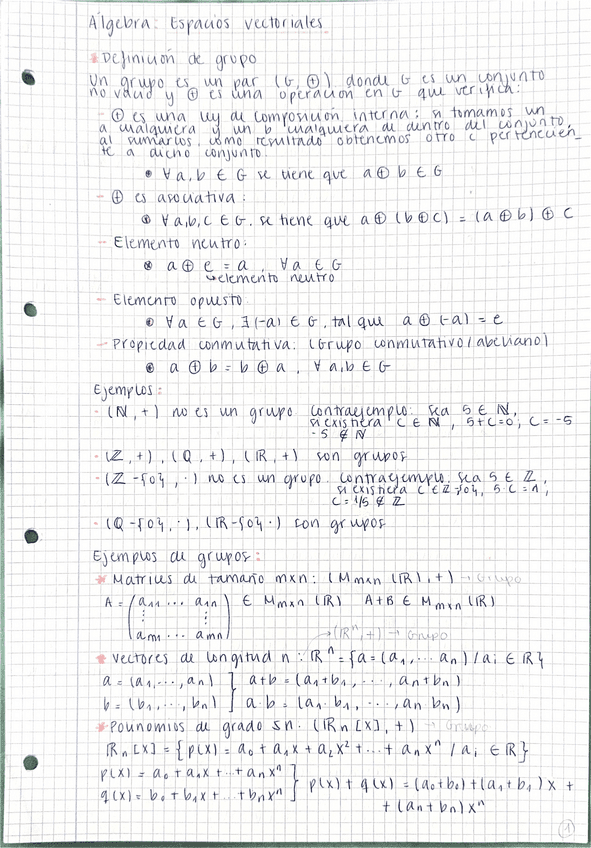 Álgebra: Espacios vectoriales
* Definición de grupo
Un grupo es un par (G, ⊕) donde G es un conjunto
no vacío y ⊕ es una operación en G que verifica:
- ⊕ es una ley de composición interna: si tomamos un
a cualquiera y un b cualquiera de dentro del conjunto,
al sumarlos, como resultado obtenemos otro c pertenecien_
te a dicho conjunto.
• ∀ a, b ∈ G se tiene que a ⊕ b ∈ G
- ⊕ es asociativa:
• ∀ a,b,c ∈ G, se tiene que a ⊕ (b ⊕ c) = (a ⊕ b) ⊕ c
- Elemento neutro:
• a ⊕ e = a, ∀ a ∈ G
↳ elemento neutro
- Elemento opuesto
• ∀ a ∈ G, ∃ (-a) ∈ G, tal que a ⊕ (-a) = e
- Propiedad conmutativa: (Grupo conmutativo/abeliano)
• a ⊕ b = b ⊕ a, ∀ a,b ∈ G
Ejemplos:
- (ℕ, +) no es un grupo. Contraejemplo: sea 5 ∈ ℕ,
si existiera c ∈ ℕ, 5+c=0, c = -5
-5 ∉ ℕ
- (ℤ, +), (ℚ, +), (ℝ, +) son grupos
- (ℤ-{0}, ·) no es un grupo. Contraejemplo: sea 5 ∈ ℤ,
si existiera c ∈ ℤ-{0}, 5·c = 1,
c = 1/5 ∉ ℤ
- (ℚ-{0}, ·), (ℝ-{0}, ·) son grupos
Ejemplos de grupos:
* Matrices de tamaño m×n: (M m×n (ℝ), +) → Grupo
A = ( a11 ... a1n ) ∈ M m×n (ℝ) A+B ∈ M m×n (ℝ)
⋮ ⋮
am1 ... amn
→ (ℝⁿ, +) → Grupo
* Vectores de longitud n: ℝⁿ = {a = (a1, ... an) / ai ∈ ℝ}
a = (a1, ..., an) } a+b = (a1+b1, ..., an+bn)
b = (b1, ..., bn) } a·b = (a1·b1, ..., an·bn)
* Polinomios de grado ≤n: (ℝn [x], +) → Grupo
ℝn [x] = {p(x) = a0 + a1x + a2x² + ... + anxⁿ / ai ∈ ℝ}
p(x) = a0 + a1x + ... + anxⁿ } p(x) + q(x) = (a0+b0) + (a1+b1) x +
q(x) = b0 + b1x + ... + bnxⁿ } + (an+bn) xⁿ
1